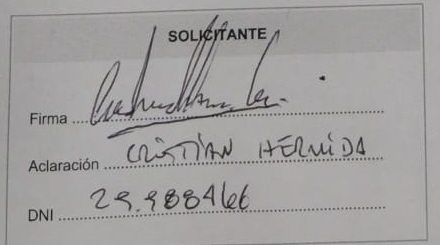 SOLICITANTE
Firma
Aclaración CRISTIAN HERMIDA
DNI 29.988466